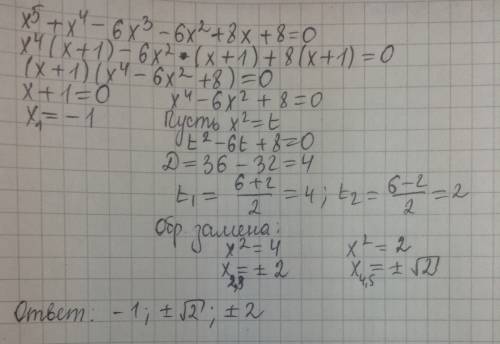 x⁵ + x⁴ - 6x³ - 6x² + 8x + 8 = 0
x⁴(x+1) - 6x² · (x+1) + 8(x+1) = 0
(x+1)(x⁴ - 6x² + 8) = 0
x + 1 = 0    x⁴ - 6x² + 8 = 0
x₁ = -1    Пусть x² = t
t² - 6t + 8 = 0
D = 36 - 32 = 4
t₁ = (6+2)/2 = 4; t₂ = (6-2)/2 = 2
Обр. замена:
x² = 4    x² = 2
x₂,₃ = ± 2    x₄,₅ = ± √2
Ответ: -1; ±√2; ±2